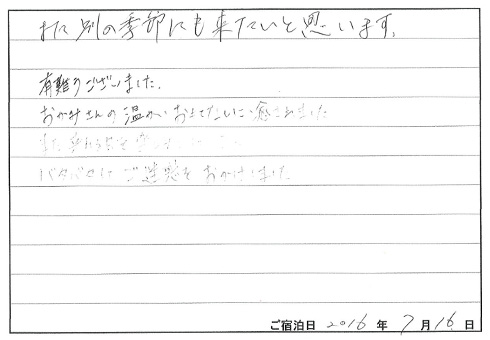 また別の季節にも来たいと思います。
有難うございました。
おかみさんの温かいおもてなしに癒されました
また
バタバタし ご迷惑をおかけしました
ご宿泊日 2016 年 7 月 16 日